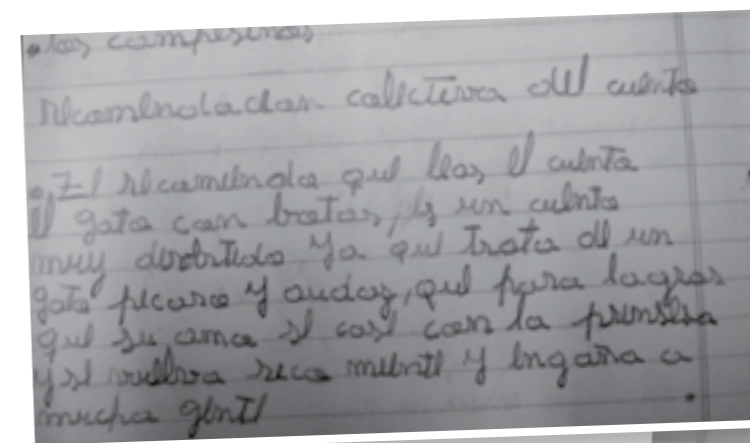 • los campesinos
Recomendacion colectiva del cuento
• Te recomiendo que leas el cuento
el gato con botas, es un cuento
muy divertido ya que trata de un
gato picaro y audaz, que para lograr
que su amo se case con la prinsesa
y se vuelva rico miente y engaña a
mucha gente